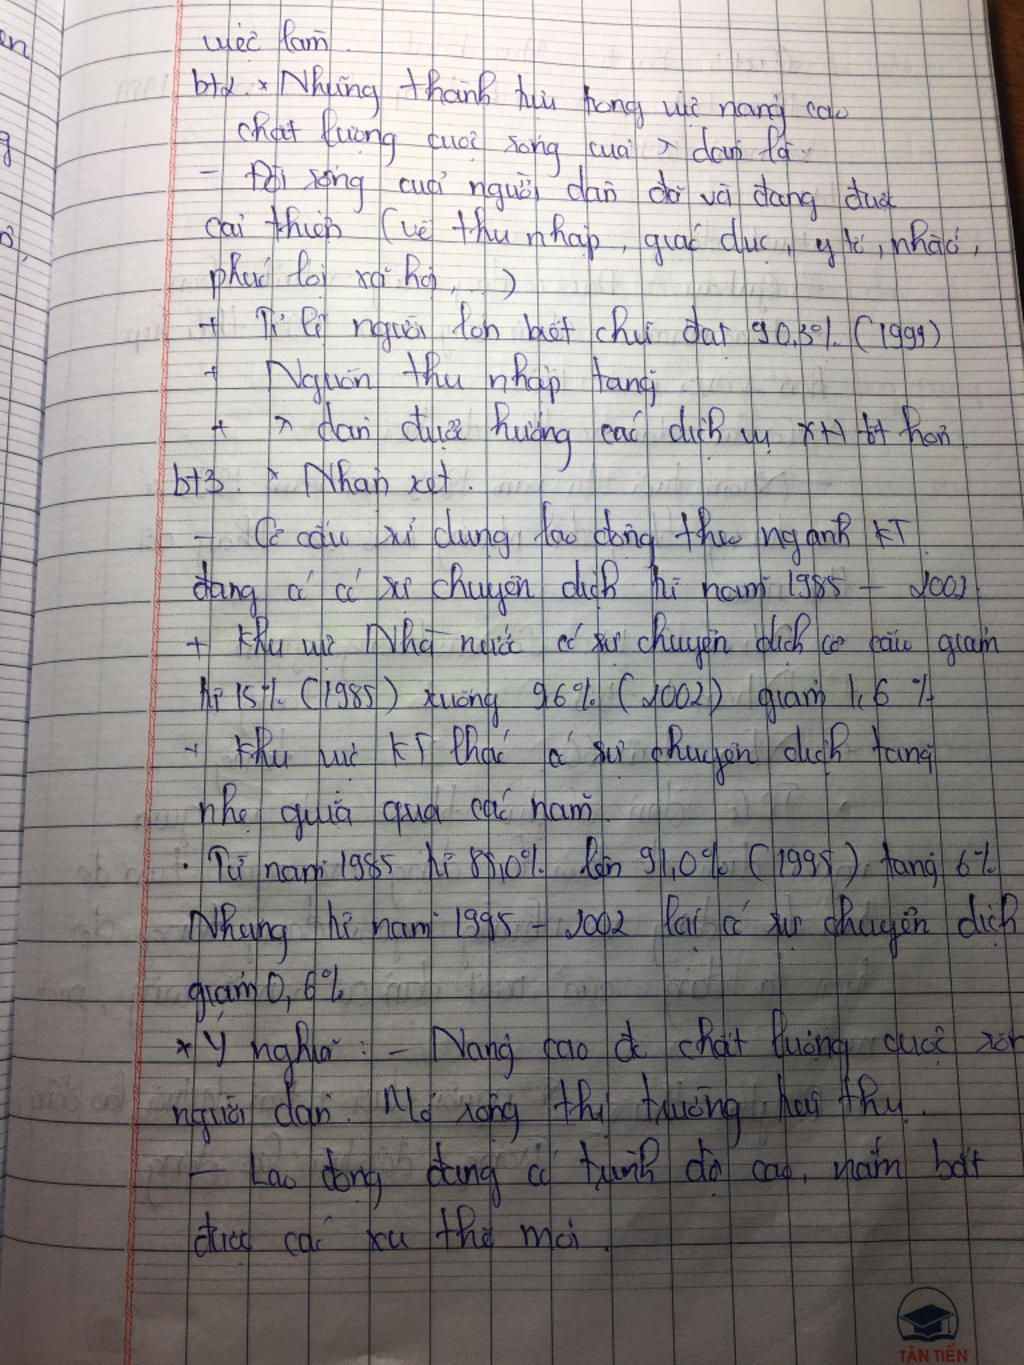 việc làm.
bt2. * Những thành tựu trong việc nâng cao
chất lượng cuộc sống của > dân là:
- Đời sống của người dân đã và đang được
cải thiện (về thu nhập, giáo dục, y tế, nhà ở,
phúc lợi xã hội,...)
+ Tỉ lệ người lớn biết chữ đạt 90,3% (1999)
+ Nguồn thu nhập tăng
+ > dân được hưởng các dịch vụ XH tốt hơn
bt3. * Nhận xét.
- Cơ cấu sử dụng lao động theo ngành KT
đang có có sự chuyển dịch từ năm 1985 - 2002
+ Khu vực Nhà nước có sự chuyển dịch cơ cấu giảm
từ 15% (1985) xuống 9,6% (2002) giảm 1,6 %
+ Khu vực KT khác có sự chuyển dịch tăng
nhẹ giữa qua các năm.
· Từ năm 1985 từ 85,0% lên 91,0% (1995) tăng 6%
Nhưng từ năm 1995 - 2002 lại có sự chuyển dịch
giảm 0,6%
* Ý nghĩa: - Nâng cao đc chất lượng cuộc sốn
người dân. Mở rộng thị trường tiêu thụ.
- Lao động đang có trình độ cao, nắm bắt
được các xu thế mới.
TÂN TIẾN